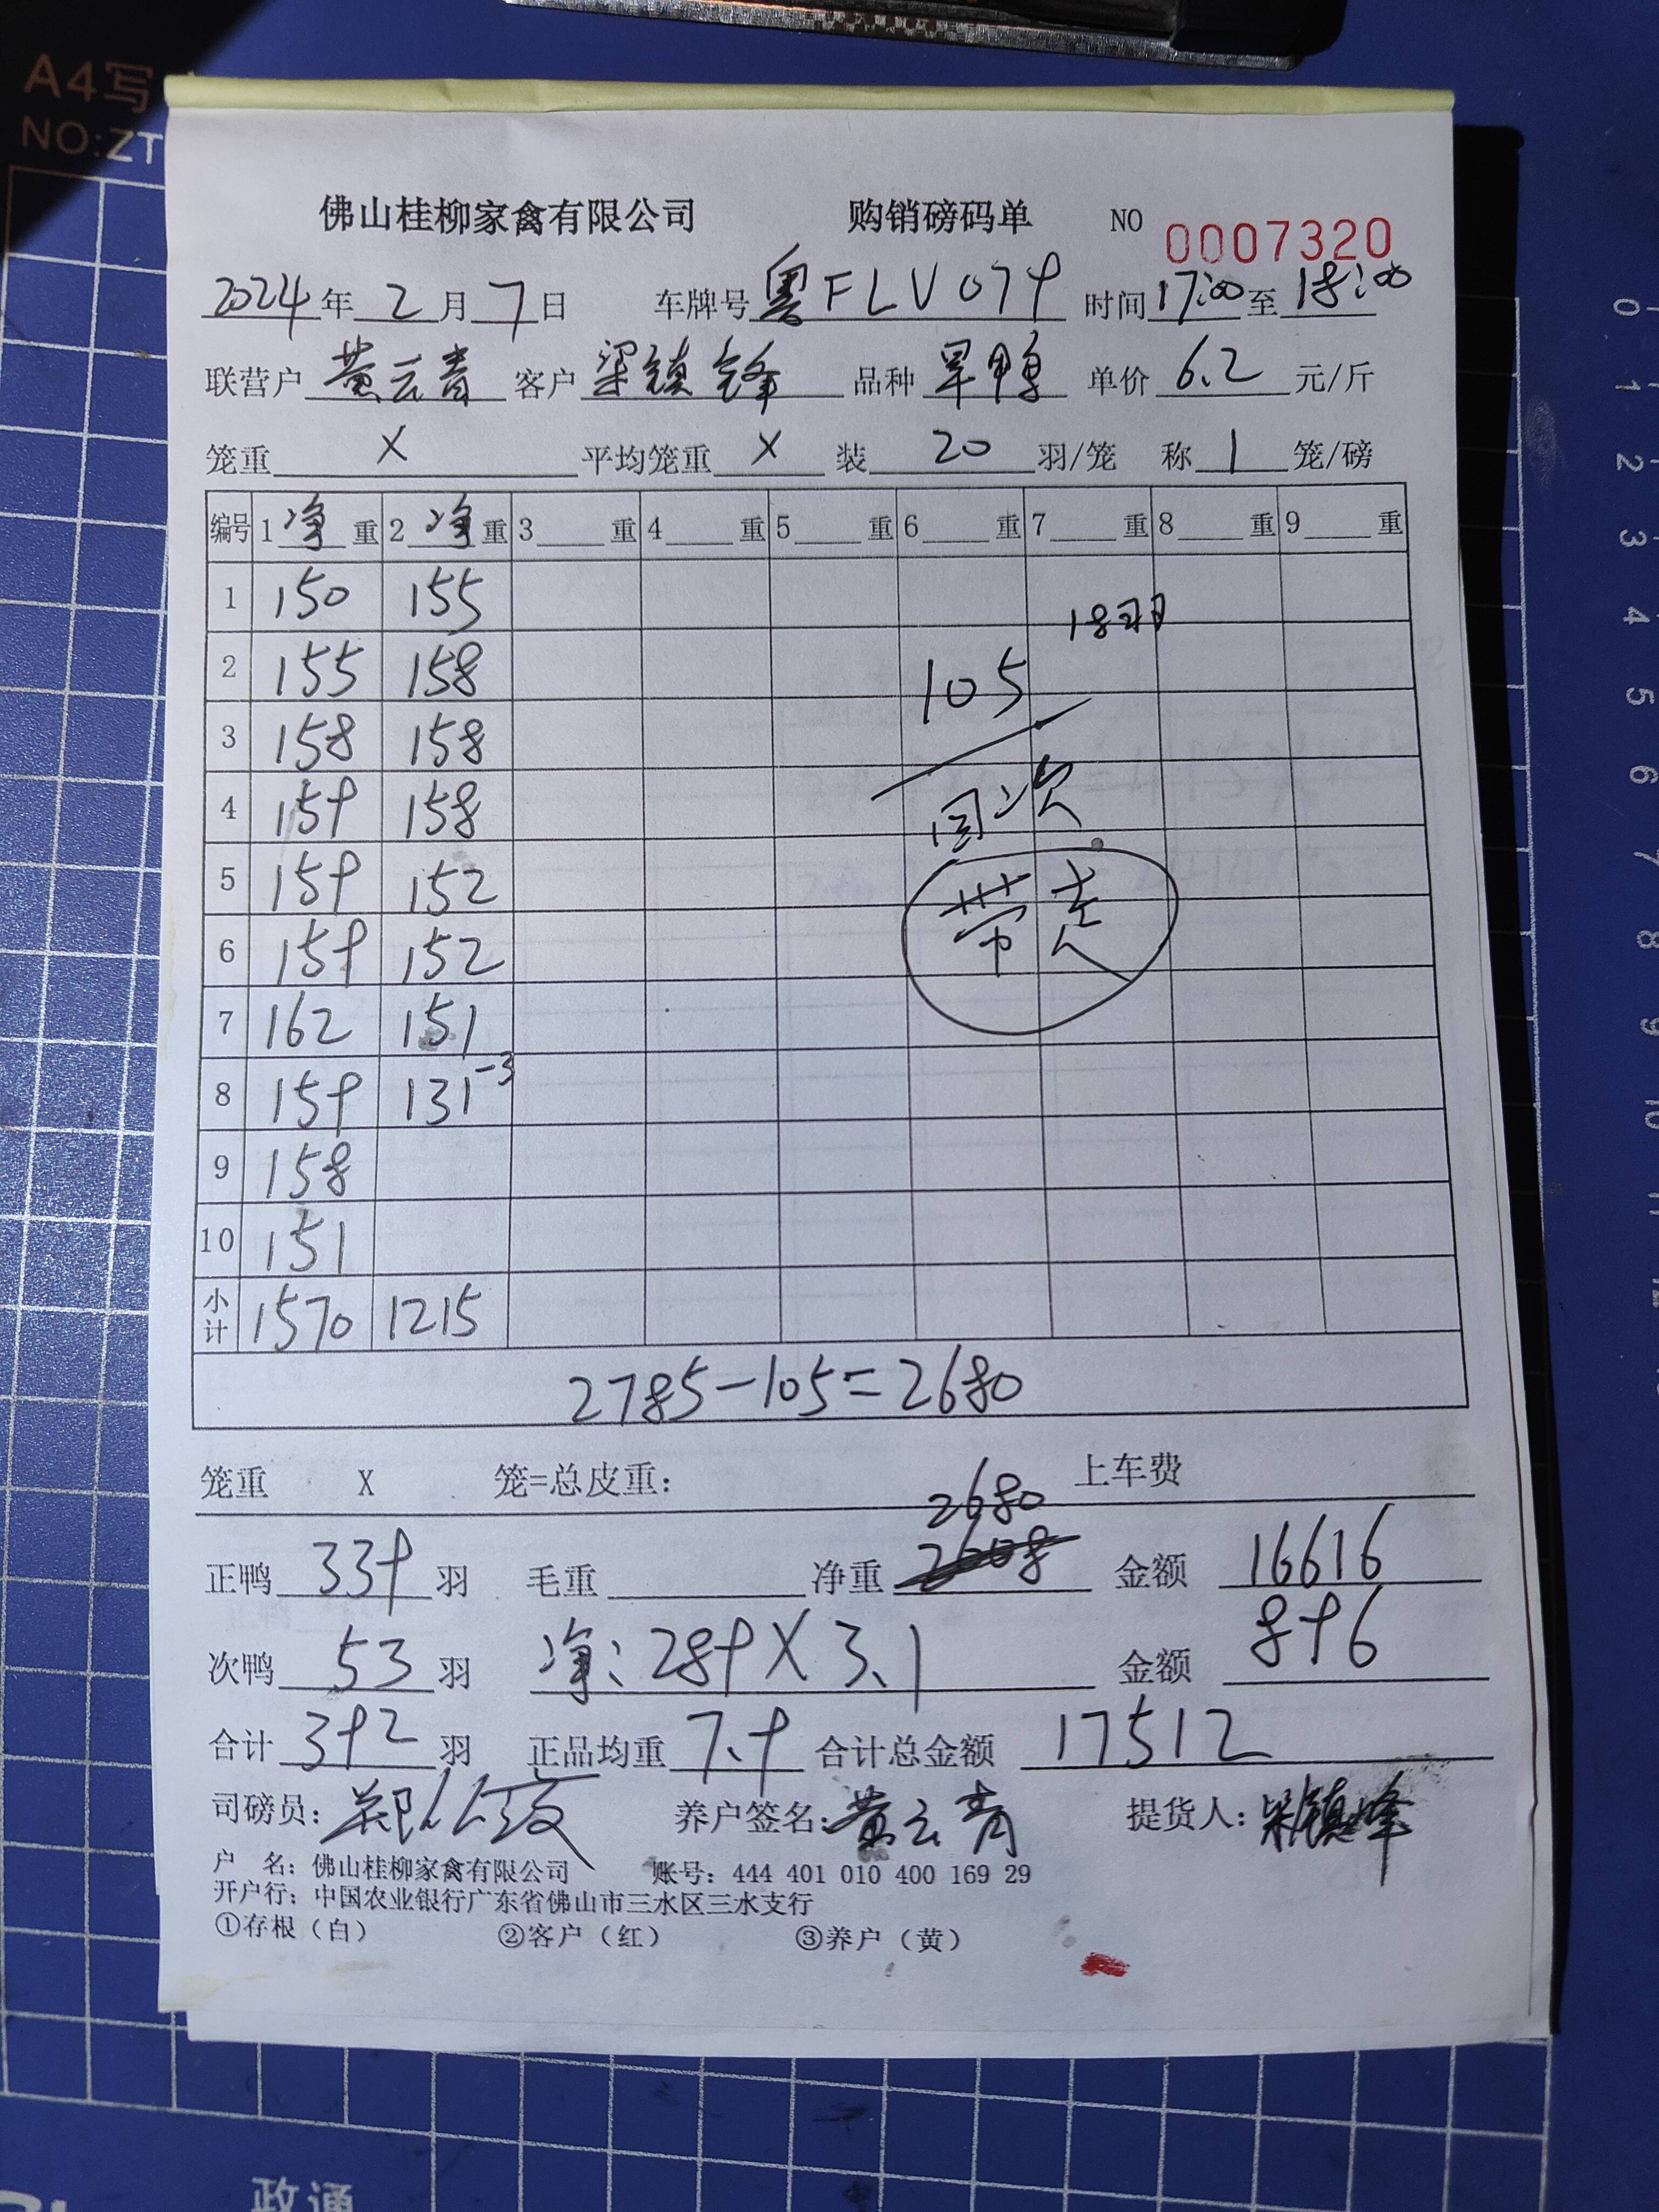 A4写
NO:ZT
佛山桂柳家禽有限公司 购销磅码单 NO 0007320
2024年2月7日 车牌号 粤FLV079 时间 17:00 至 18:00
联营户 黄云青 客户 梁镇锋 品种 旱鸭 单价 6.2 元/斤
笼重 X 平均笼重 X 装 20 羽/笼 称 1 笼/磅
编号 1 净 重 2 净 重 3 重 4 重 5 重 6 重 7 重 8 重 9 重
1 150 155
18羽
2 155 158
105
3 158 158
4 159 158
回次
5 159 152
带走
6 159 152
7 162 151
8 159 131-3
9 158
10 151
小计 1570 1215
2785-105=2680
笼重 X 笼=总皮重: 上车费
2680
正鸭 339 羽 毛重 净重 金额 16616
次鸭 53 羽 净: 289X3.1 金额 896
合计 392 羽 正品均重 7.9 合计总金额 17512
司磅员: 养户签名: 黄云青 提货人: 梁镇锋
户 名: 佛山桂柳家禽有限公司 账号: 444 401 010 400 169 29
开户行: 中国农业银行广东省佛山市三水区三水支行
①存根（白） ②客户（红） ③养户（黄）
0 1 2 3 4 5 6 7 8 9 10 11 12
政通